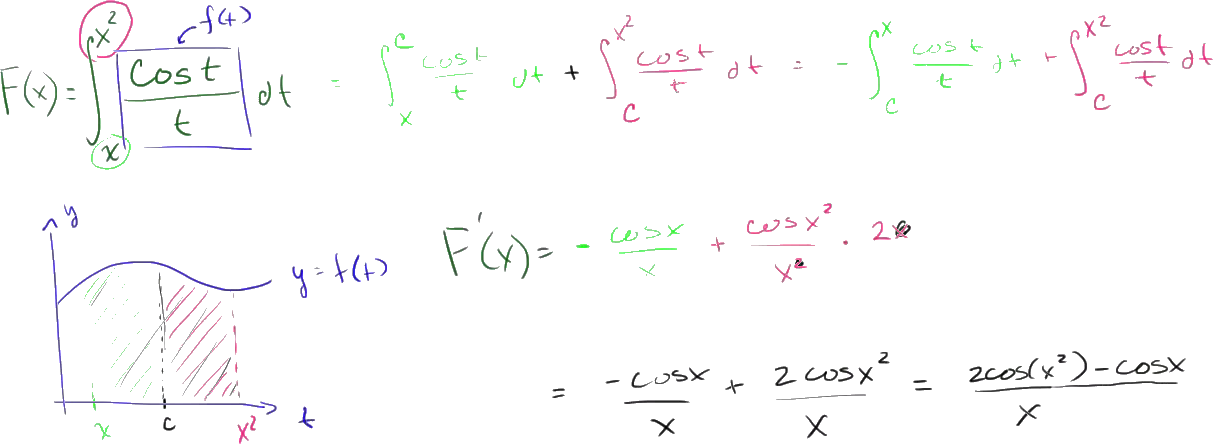 f(t)
F(x) = ∫_x^{x²} cos t / t dt = ∫_x^c cos t / t dt + ∫_c^{x²} cos t / t dt = - ∫_c^x cos t / t dt + ∫_c^{x²} cos t / t dt
y
F'(x) = - cos x / x + cos x² / x² · 2x
y = f(t)
x c x² t
= -cos x / x + 2 cos x² / x = 2cos(x²) - cos x / x